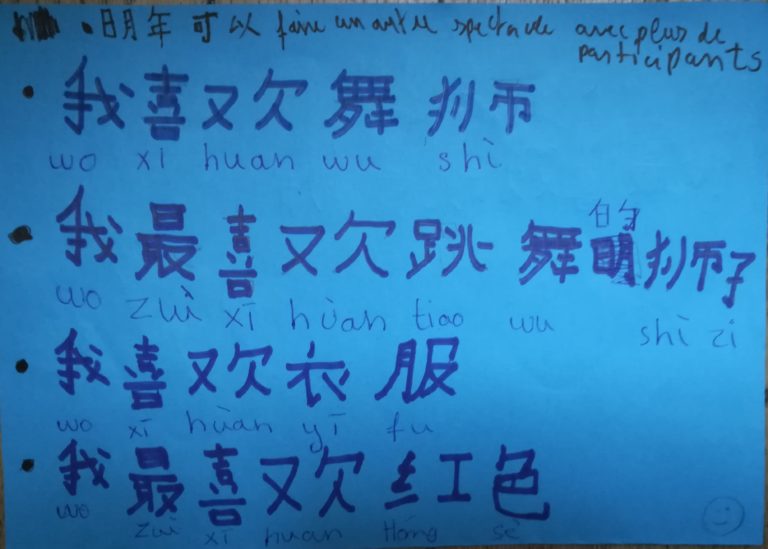 • 明年 可以 faire un autre spectacle avec plus de
participants
• 我喜欢舞狮
wo xi huan wu shi
的
• 我最喜欢跳舞 狮子
wo zuì xī hùan tiao wu shì zi
• 我喜欢衣服
wo xī hùan yī fu
• 我最喜欢红色
wo zuì xī huan Hóng sè